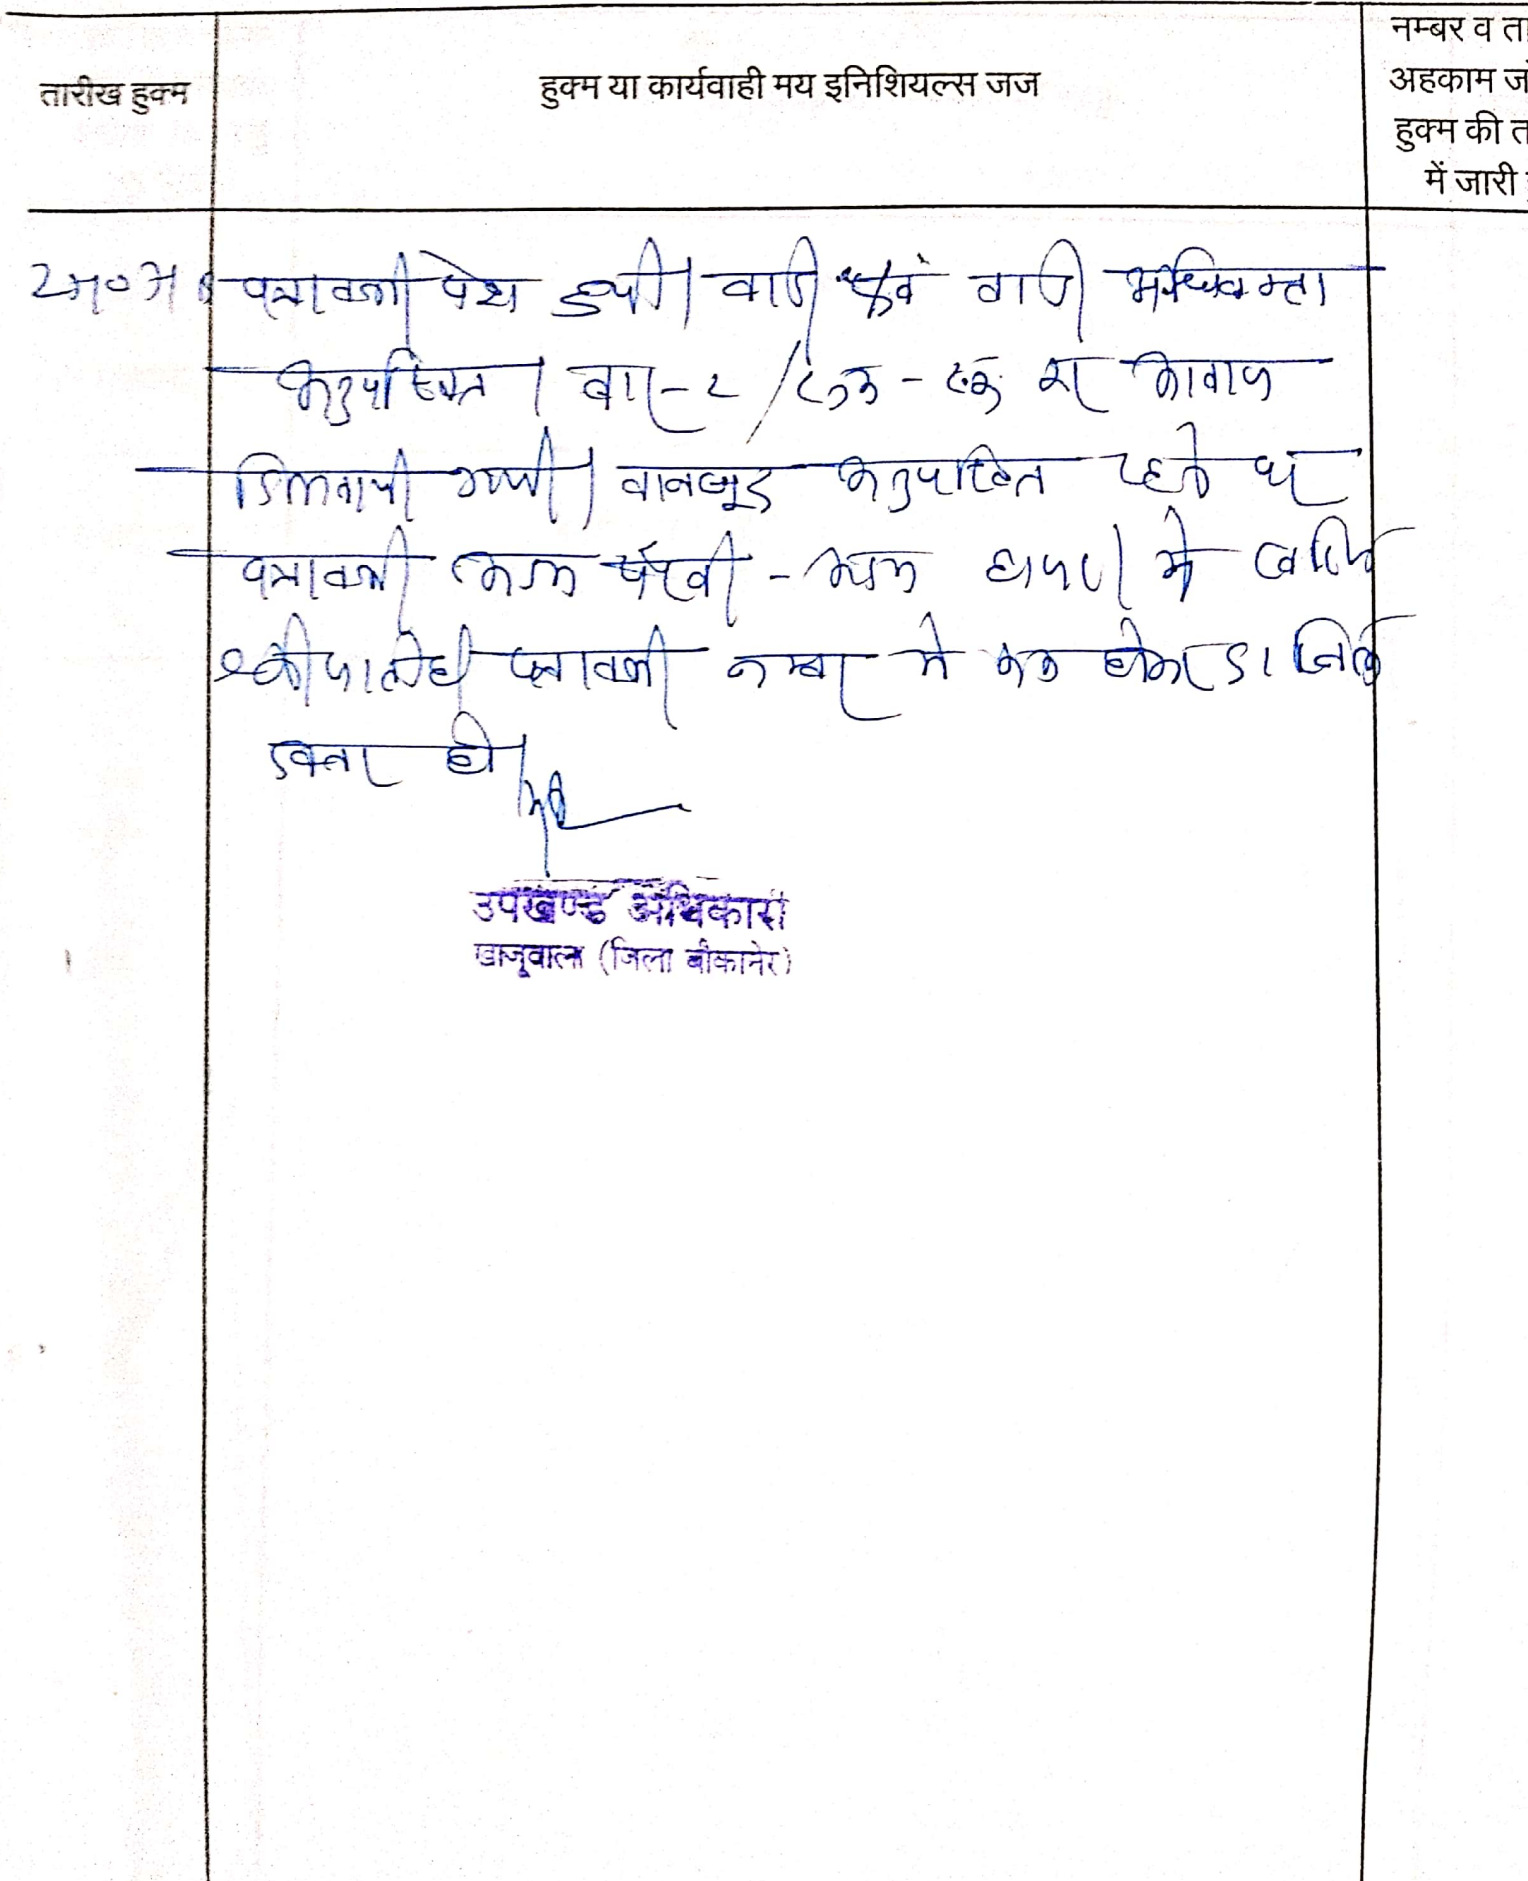 तारीख हुक्म
हुक्म या कार्यवाही मय इनिशियल्स जज
नम्बर व ता
अहकाम जो
हुक्म की त
में जारी
पत्रावली पेश हुयी। वादी एवं वादी अधिवक्ता
अनुपस्थित। बार-२ / रुक-रुक कर आवाज
दिलवायी गयी। बावजूद अनुपस्थित रहने पर
पत्रावली अदम पैरवी - अदम हाजरी में खारिज
की जाती है। पत्रावली नम्बर से कम होकर दा० खिल
दफ्तर हो।
उपखण्ड अधिकारी
खाजूवाला (जिला बीकानेर)